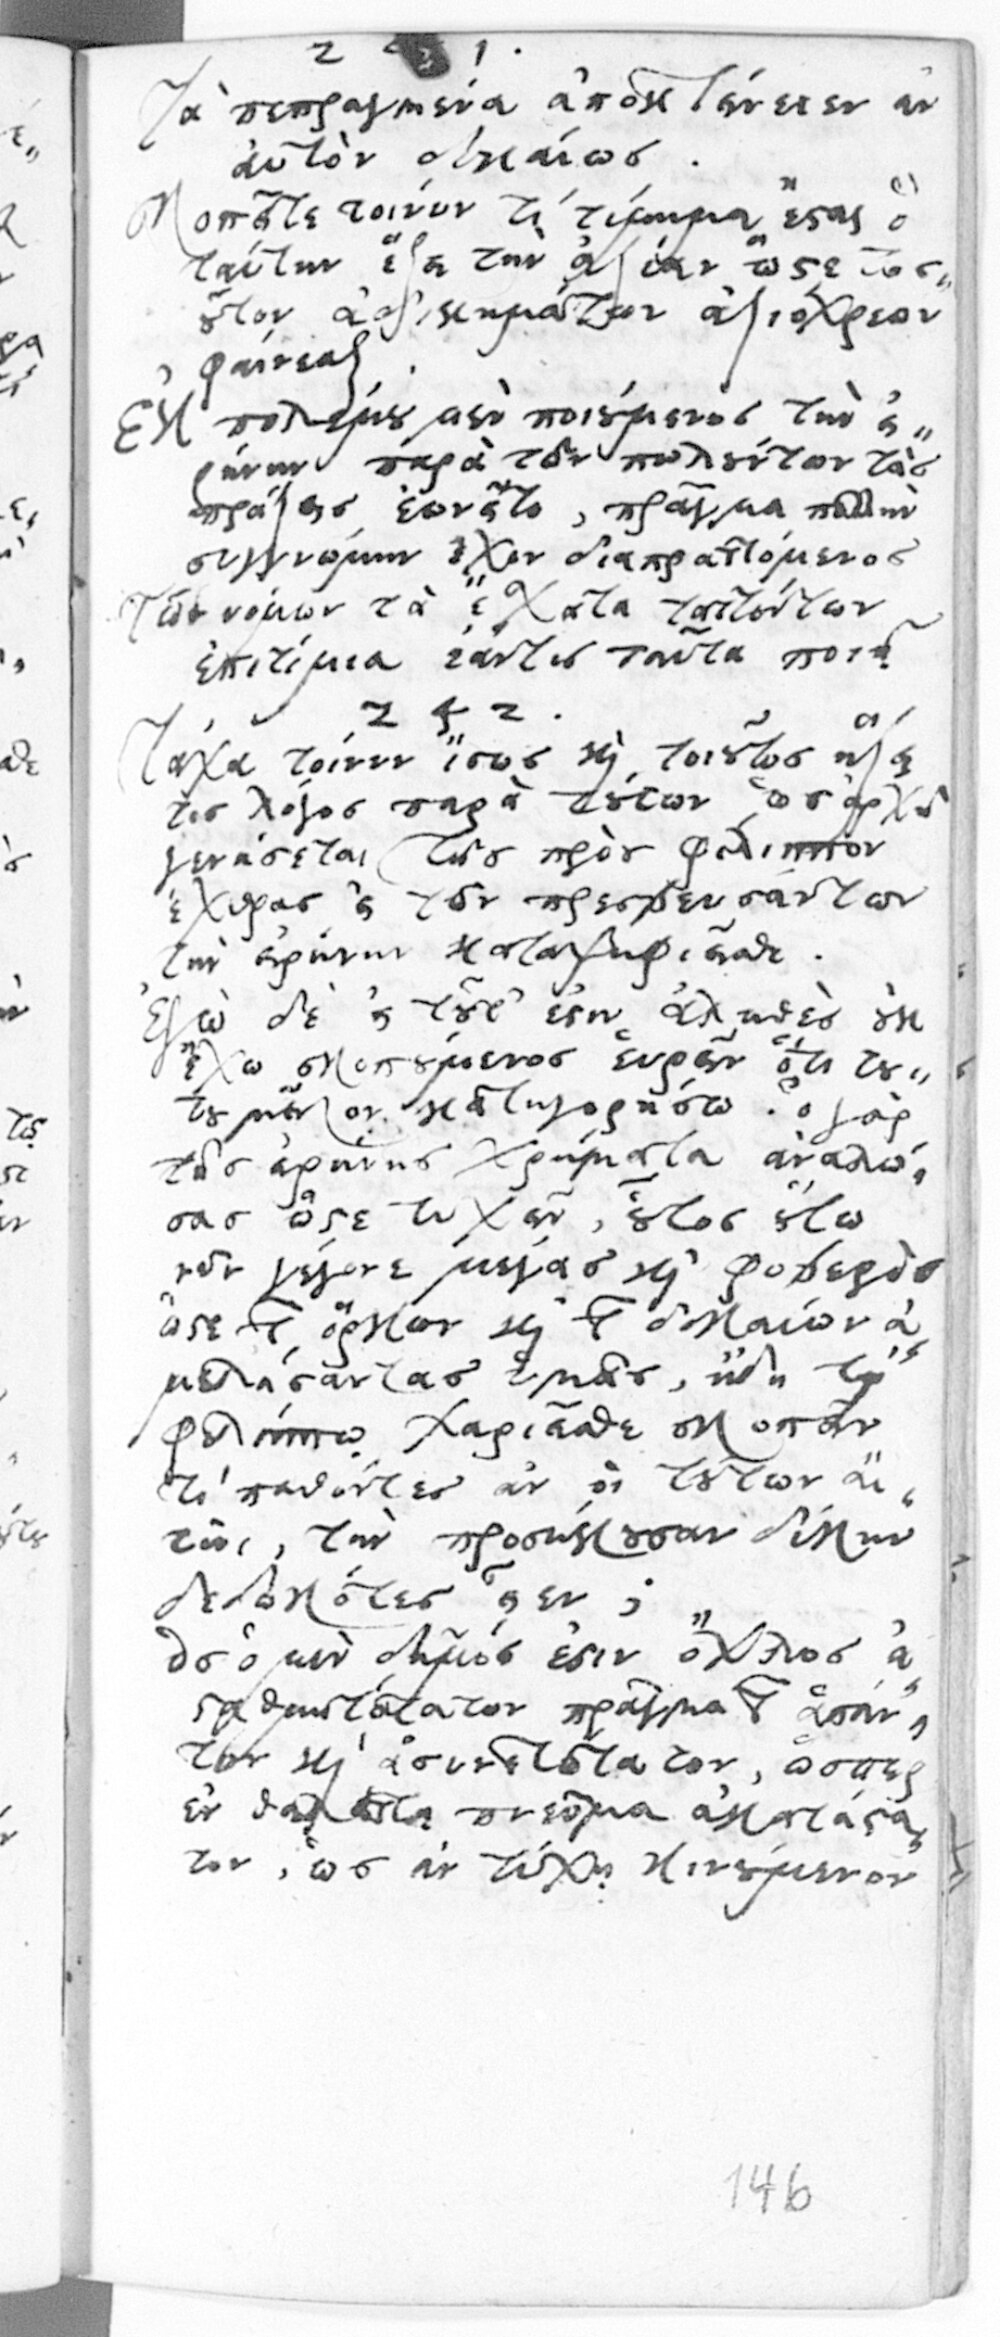 2 4 1 .
Τὰ πεπραγμένα ἀπόκτένειεν ἂν
ἀυτὸν δικαίως .
Σκοπεῖτε τοίνυν τί τίμημα ἔςαι ὃ
ταύτην ἕξει τὴν ἀξίαν ὥςε τοσ„
ȣ́των ἀδικημάτων ἀξιόχρεων
φαίνεσθαι .
Ἐκ πολέμȣ μὲν ποιȣ́μενος τὴν ἐι„
ρήνην παρὰ τῶν πωλȣ́ντων τὰς
πράξεις ἐωνεῖτο , πρᾶγμα πολλὴν
συγγνώμην ἔχον διαπραττόμενος
Τῶν νόμων τὰ ἔσχατα ταττόντων
ἐπιτίμια ἐάντις ταῦτα ποιῇ
2 4 2 .
Τάχα τοίνυν ἴσως καὶ τοιȣ͂τος ἥξει
τις λόγος παρὰ τȣ́των ὡς ἀρχὴ
γενήσεται τῆς πρὸς φίλιππον
ἔχθρας εἰ τῶν πρεσβευσάντων
τὴν ἐιρήνην καταψηφιεῖσθε .
Ἐγὼ δὲ εἰ τȣ͂τ' ἐςιν ἀληθὲς ȣ̓κ
ἔχω σκοπȣ́μενος ἑυρεῖν ὅτι τȣ́„
τȣ μεῖζον κατηγορήσω . ὁ γὰρ
τῆς ἐιρήνης χρήματα ἀναλώ„
σας ὥςε τυχεῖν , ȣ̓͂τος ȣ̔́τω
νῦν γέγονε μέγας καὶ φοβερὸς
ὥςε τῶν ὅρκων καὶ τῶν δικαίων ἀ„
μελήσαντας ὑμᾶς , ἤδη τί
φιλίππῳ χαριεῖσθε σκοπεῖν
τί παθόντες ἂν οἱ τȣ́των ἄι„
τιοι , τὴν προσήκȣσαν δίκην
δεδωκότες εἶεν ;
ὡς ὁ μὲν δῆμός ἐςιν ὄχλος ἀ„
ςαθμητότατον πρᾶγμα τῶν ἁπάν„
των καὶ ἀσυνετώτατον , ὥσπερ
ἐν θαλάττῃ πνεῦμα ἀκατάςα„
τον , ὡς ἂν τύχῃ κινȣ́μενον
146